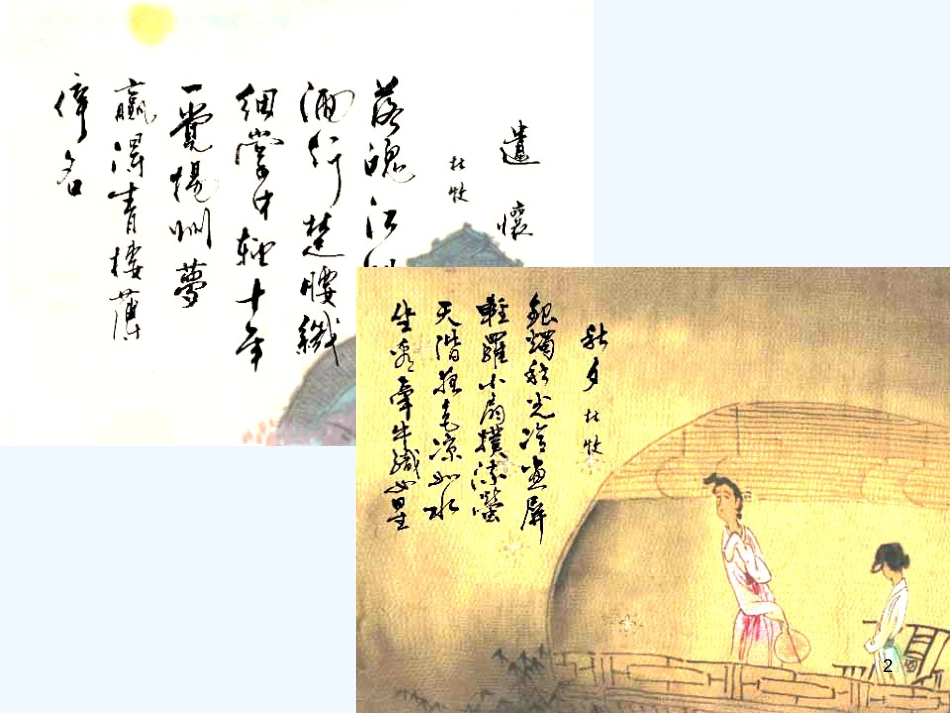 遣懷
杜牧
落魄江
酒行楚腰纖
細掌中輕十年
一覺揚州夢
贏得青樓薄
倖名
秋夕 杜牧
銀燭秋光冷畫屏
輕羅小扇撲流螢
天階夜色涼如水
坐看牽牛織女星
2